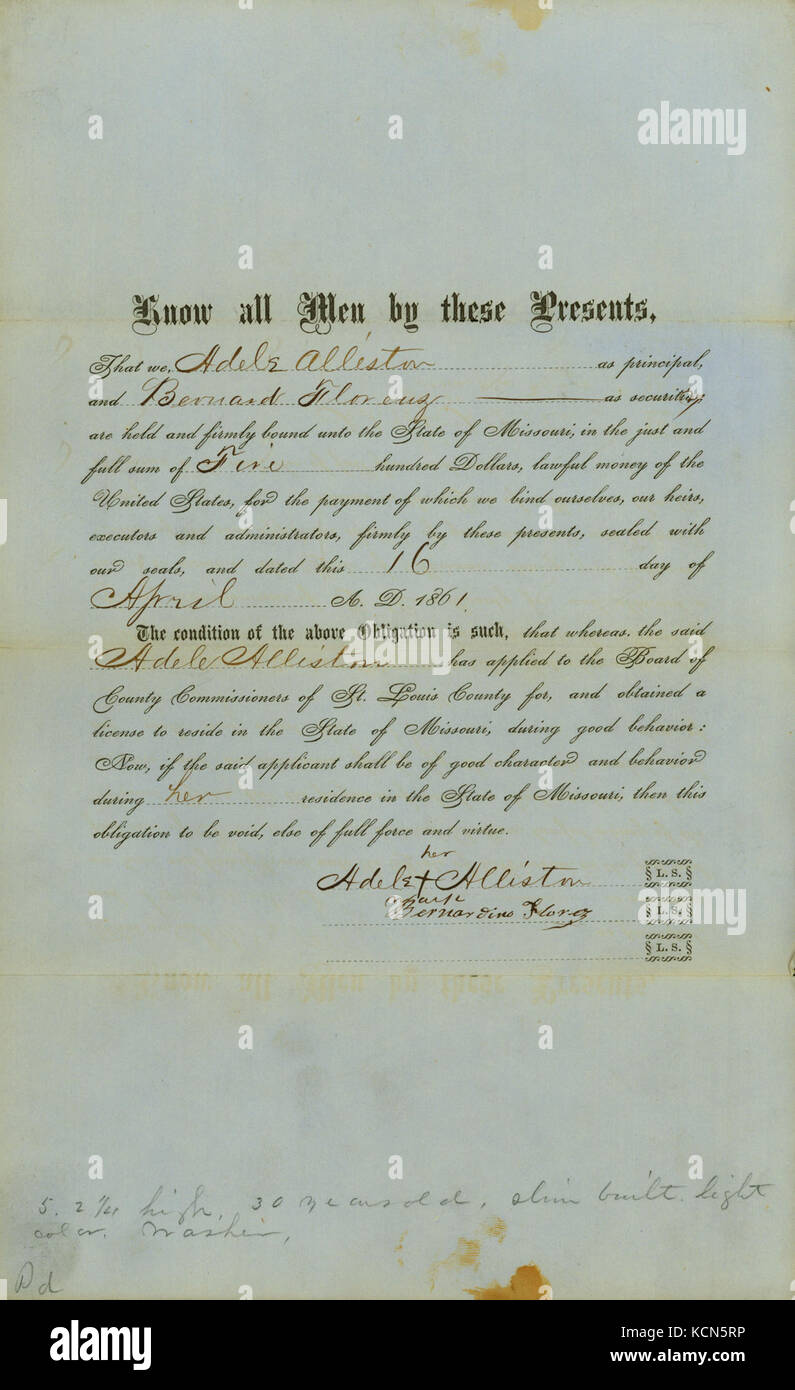 Know all Men by these Presents,
That we, Adele Alliston as principal,
and Bernard Florenz as security,
are held and firmly bound unto the State of Missouri, in the just and
full sum of Five hundred Dollars, lawful money of the
United States, for the payment of which we bind ourselves, our heirs,
executors and administrators, firmly by these presents, sealed with
our seals, and dated this 16 day of
April A. D. 1861.
The condition of the above Obligation is such, that whereas. the said
Adele Alliston has applied to the Board of
County Commissioners of St. Louis County for, and obtained a
license to reside in the State of Missouri, during good behavior:
Now, if the said applicant shall be of good character and behavior
during her residence in the State of Missouri, then this
obligation to be void, else of full force and virtue.
her
Adele + Alliston § L. S. §
mark
Bernardino Florez § L. S. §
§ L. S. §
5. 2 1/4 high, 30 years old, slim built. light
color. Washer,
Pd
alamy
Image ID: KCN5RP
www.alamy.com